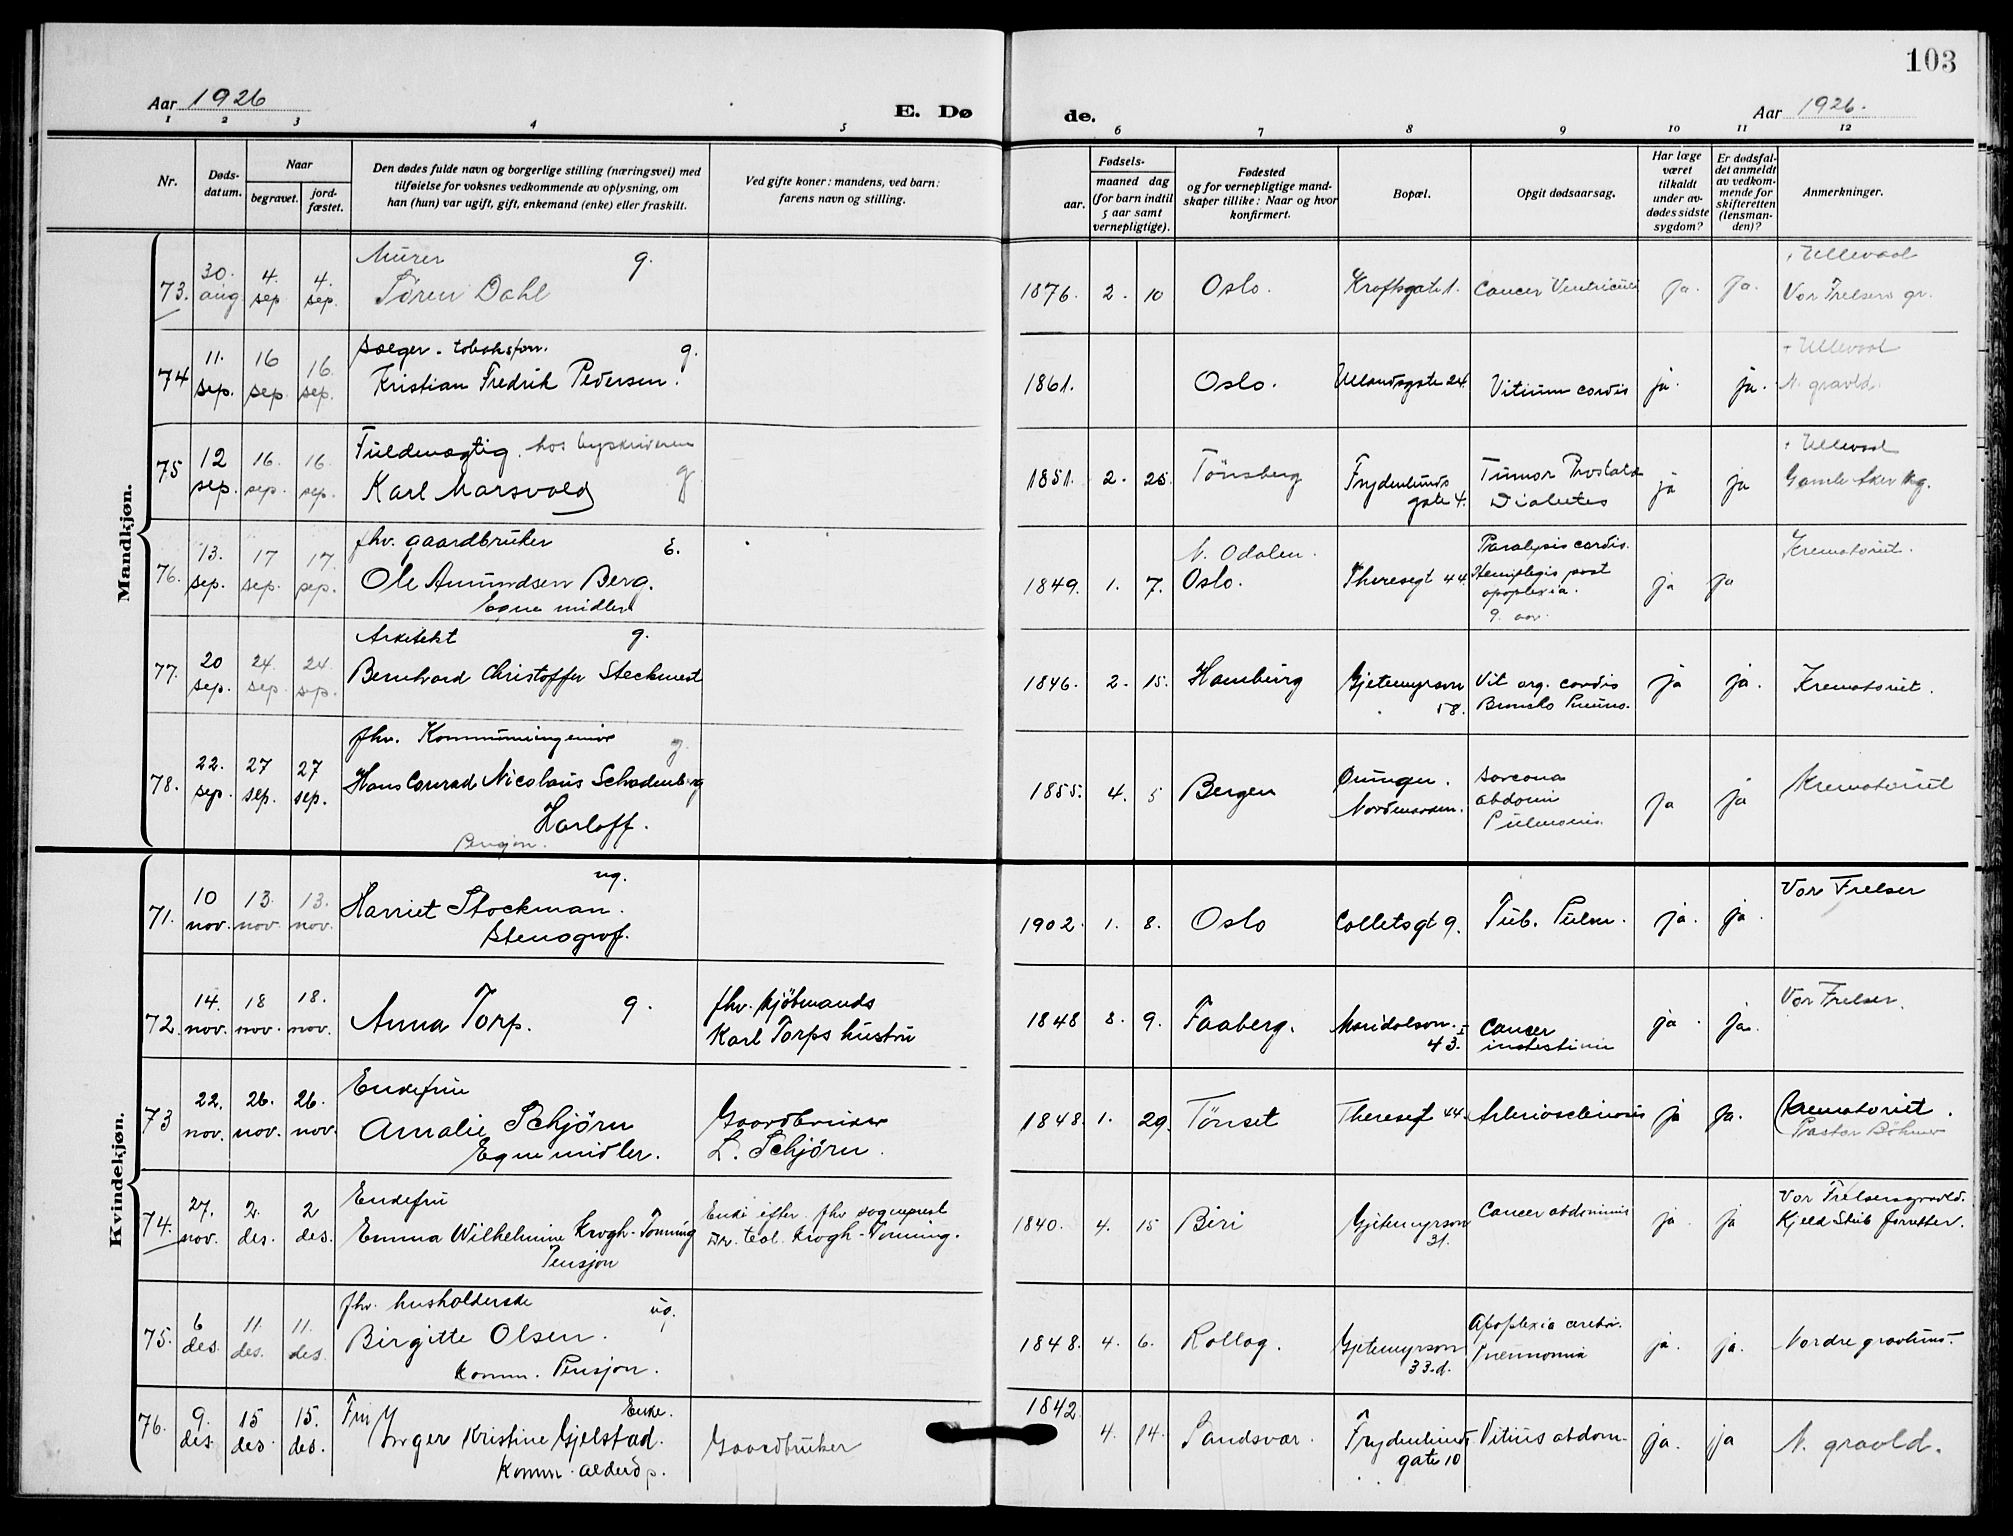 103
Aar 1926
E. Dø
de.
Aar 1926.
1 2 3 4 5 6 7 8 9 10 11 12
Nr.
Døds-
datum.
Naar
begravet.
jord-
fæstet.
Den dødes fulde navn og borgerlige stilling (næringsvei) med
tilføielse for voksnes vedkommende av oplysning, om
han (hun) var ugift, gift, enkemand (enke) eller fraskilt.
Ved gifte koner: mandens, ved barn:
farens navn og stilling.
Fødsels-
aar.
maaned dag
(for barn indtil
5 aar samt
vernepligtige).
Fødested
og for vernepligtige mand-
skaper tillike: Naar og hvor
konfirmert.
Bopæl.
Opgit dødsaarsag.
Har læge
været
tilkaldt
under av-
dødes sidste
sygdom?
Er dødsfal-
det anmeldt
av vedkom-
mende for
skifteretten
(lensman-
den)?
Anmerkninger.
Mandkjøn.
73. 30. aug 4. sep 4. sep.
Murer g.
Sören Dahl
1876. 2. 10 Oslo. Kroftsgate 1. Cancer Ventriculi ja. ja.
Ullevaal
Vor Frelsers gr.
74 11. sep. 16 sep 16. sep.
Kristian Fredrik Pedersen. g.
1861. Oslo. Ullandsgate 24. Vitium cordis ja. ja.
Ullevaal
N. gravld.
75 12 sep. 16. sep. 16. sep.
Fuldmægtig. hos byskriveren
Karl Marsvold g
1851. 2. 25 Tönsberg
Frydenlunds
gate 4.
Tumor Prostata
Diabetes
ja ja
Ullevaal
Gamle Aker kg.
76. 13. sep. 17 sep. 17. sep.
fhv. gaardbruker E.
Ole Amundsen Berg.
Egne midler
1849. 1. 7.
N. Odalen.
Oslo.
Theresegt 44
Paralysis cordis.
Hemiplegis post
apoplexia.
9. aar.
ja ja
Krematoriet.
77. 20 sep. 24. sep 24 sep.
Arkitekt g.
Bernhard Christoffer Steckmest
1846. 2. 15. Hamburg
Gjetemyrson
58.
Vit org. cordis
ja ja.
Krematoriet.
78. 22. sep. 27 sep. 27 sep.
fhv. Kommuneingeniör g.
Hans Conrad Nicolaus Schadenberg
Harloff.
Pensjon.
1855. 4. 5 Bergen
Nordmarken.
Sarcoma
abdomi
Pulmonis.
ja ja
Krematoriet
Kvindekjøn.
71. 10 nov. 13. nov. 13. nov.
ug.
Harriet Stockman.
Stenograf.
1902. 1. 8. Oslo Colletsgt 9. Tub. Pulm. ja. ja.
Vor Frelser
72. 14. nov. 18 nov. 18. nov.
Anna Torp. g.
fhv. kjöbmands
Karl Torps hustru
1848 8. 9. Faaberg.
Maridalsvn. I
43.
Cancer
intestini
ja. ja.
Vor Frelser.
73 22. nov. 26. nov. 26. nov.
Enkefrue
Amalie Schjörn
Egne midler.
Gaardbruker
L. Schjörn.
1848. 1. 29. Tönset Theresegt 44. Arteriosclerosis ja ja.
Krematoriet.
Pastor Böhmer
74. 27. nov. 2. des. 2 des.
Enkefru
Emma Wilhelmine Krogh-Tonning
Pensjon
Enke efter fhv sogneprest
Dr. teol. Krogh-Tonning.
1840. 4. 15 Biri
Gjetemyrson
31.
Cancer abdominis
ja. ja
Vor Frelsersgravld.
Kjeld Stub forretter.
75. 6 des. 11. des. 11. des.
fhv. husholderske ug.
Birgitte Olsen.
Komm. Pensjon.
1848. 4. 6. Rollag.
Gjetemyrson
33.d.
Apoplexia cerebri.
Pneumonia
ja. ja.
Nordre gravlund.
76. 9. des. 15 des 15. des.
Fru Enke.
Inger Kristine Gjelstad.
Komm. alders p.
Gaardbruker
1842 4. 14. Sandsvær.
Frydenlunds
gate 10
ja. ja
N. gravld.